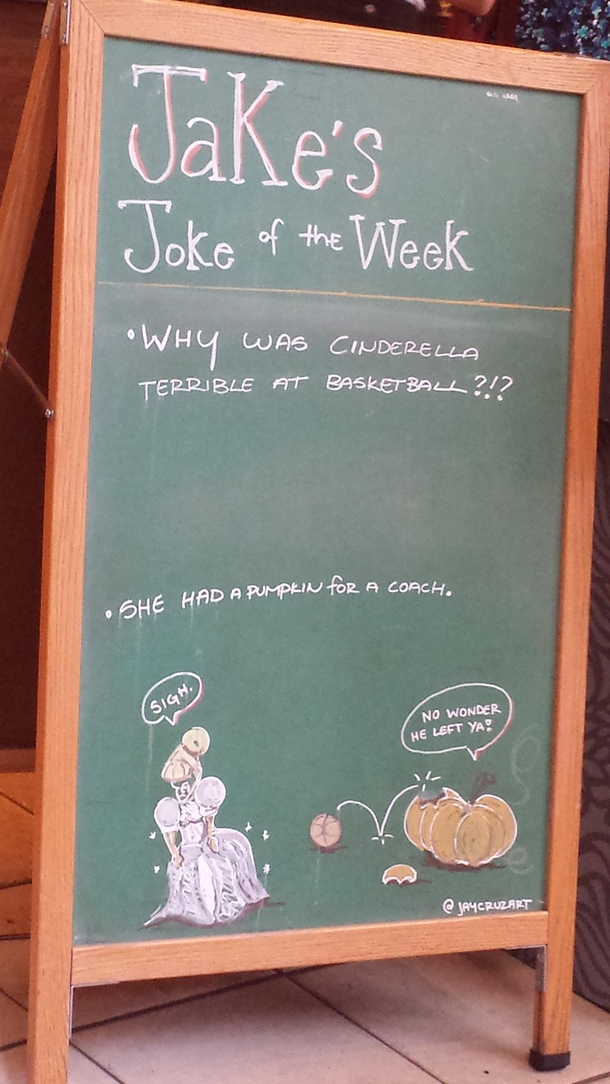 Jake's
Joke of the Week
•WHY WAS CINDERELLA
TERRIBLE AT BASKETBALL?!?
•SHE HAD A PUMPKIN for A COACH.
SIGH.
NO WONDER
HE LEFT YA!
@JAYCRUZART